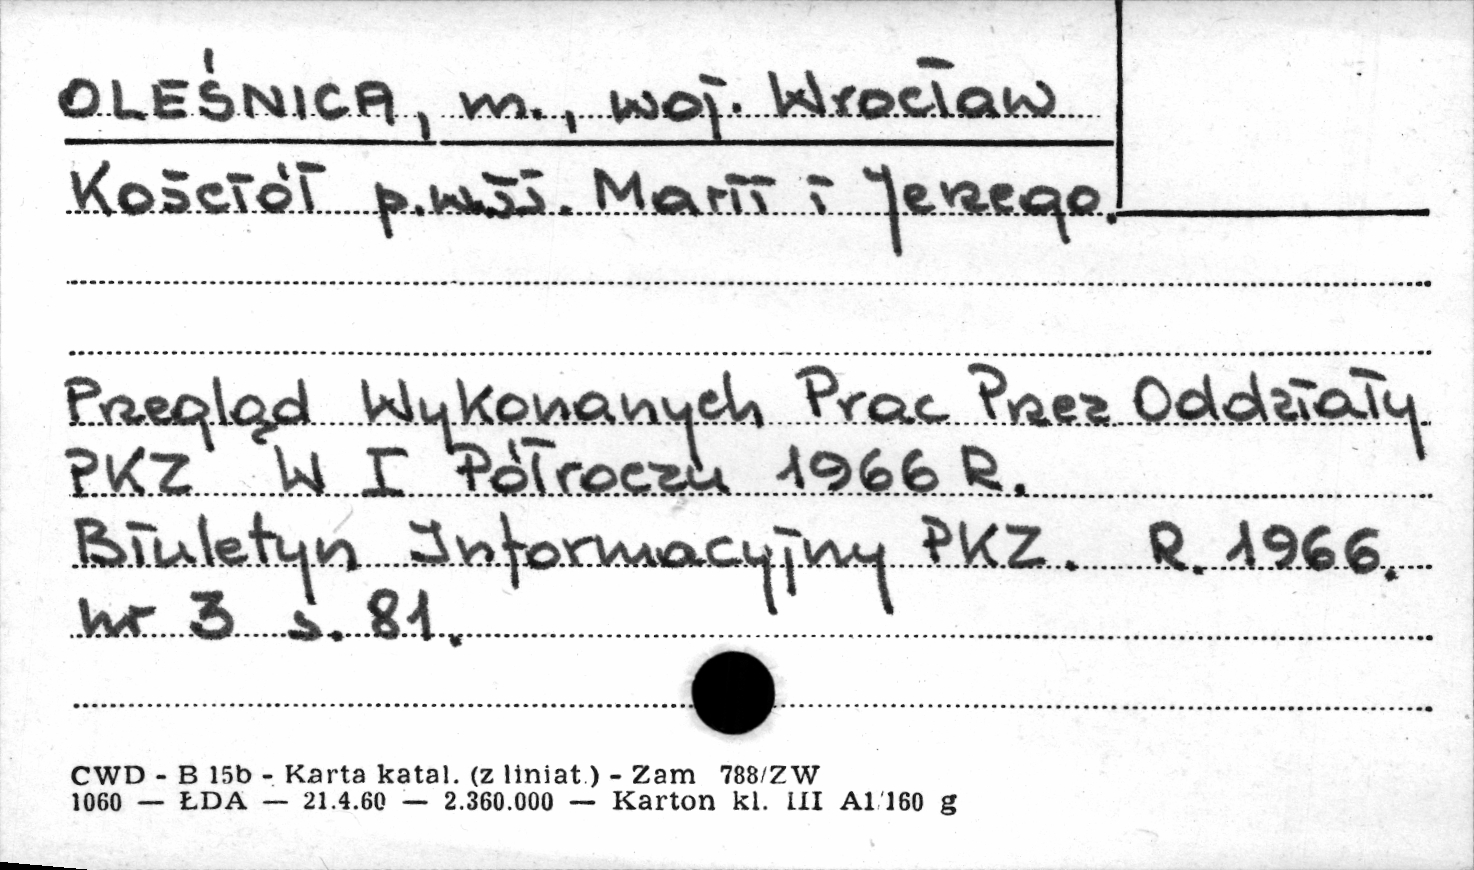 OLEŚNICA, m., woj. Wrocław
Kościół p.w.śś. Marii i Jerzego.
Przegląd Wykonanych Prac Przez Oddziały
PKZ W I Półroczu 1966 R.
Biuletyn Informacyjny PKZ. R. 1966.
nr 3 s. 81.
CWD - B 15b - Karta katal. (z liniat.) - Zam 788/ZW
1060 — ŁDA — 21.4.60 — 2.360.000 — Karton kl. III A1/160 g